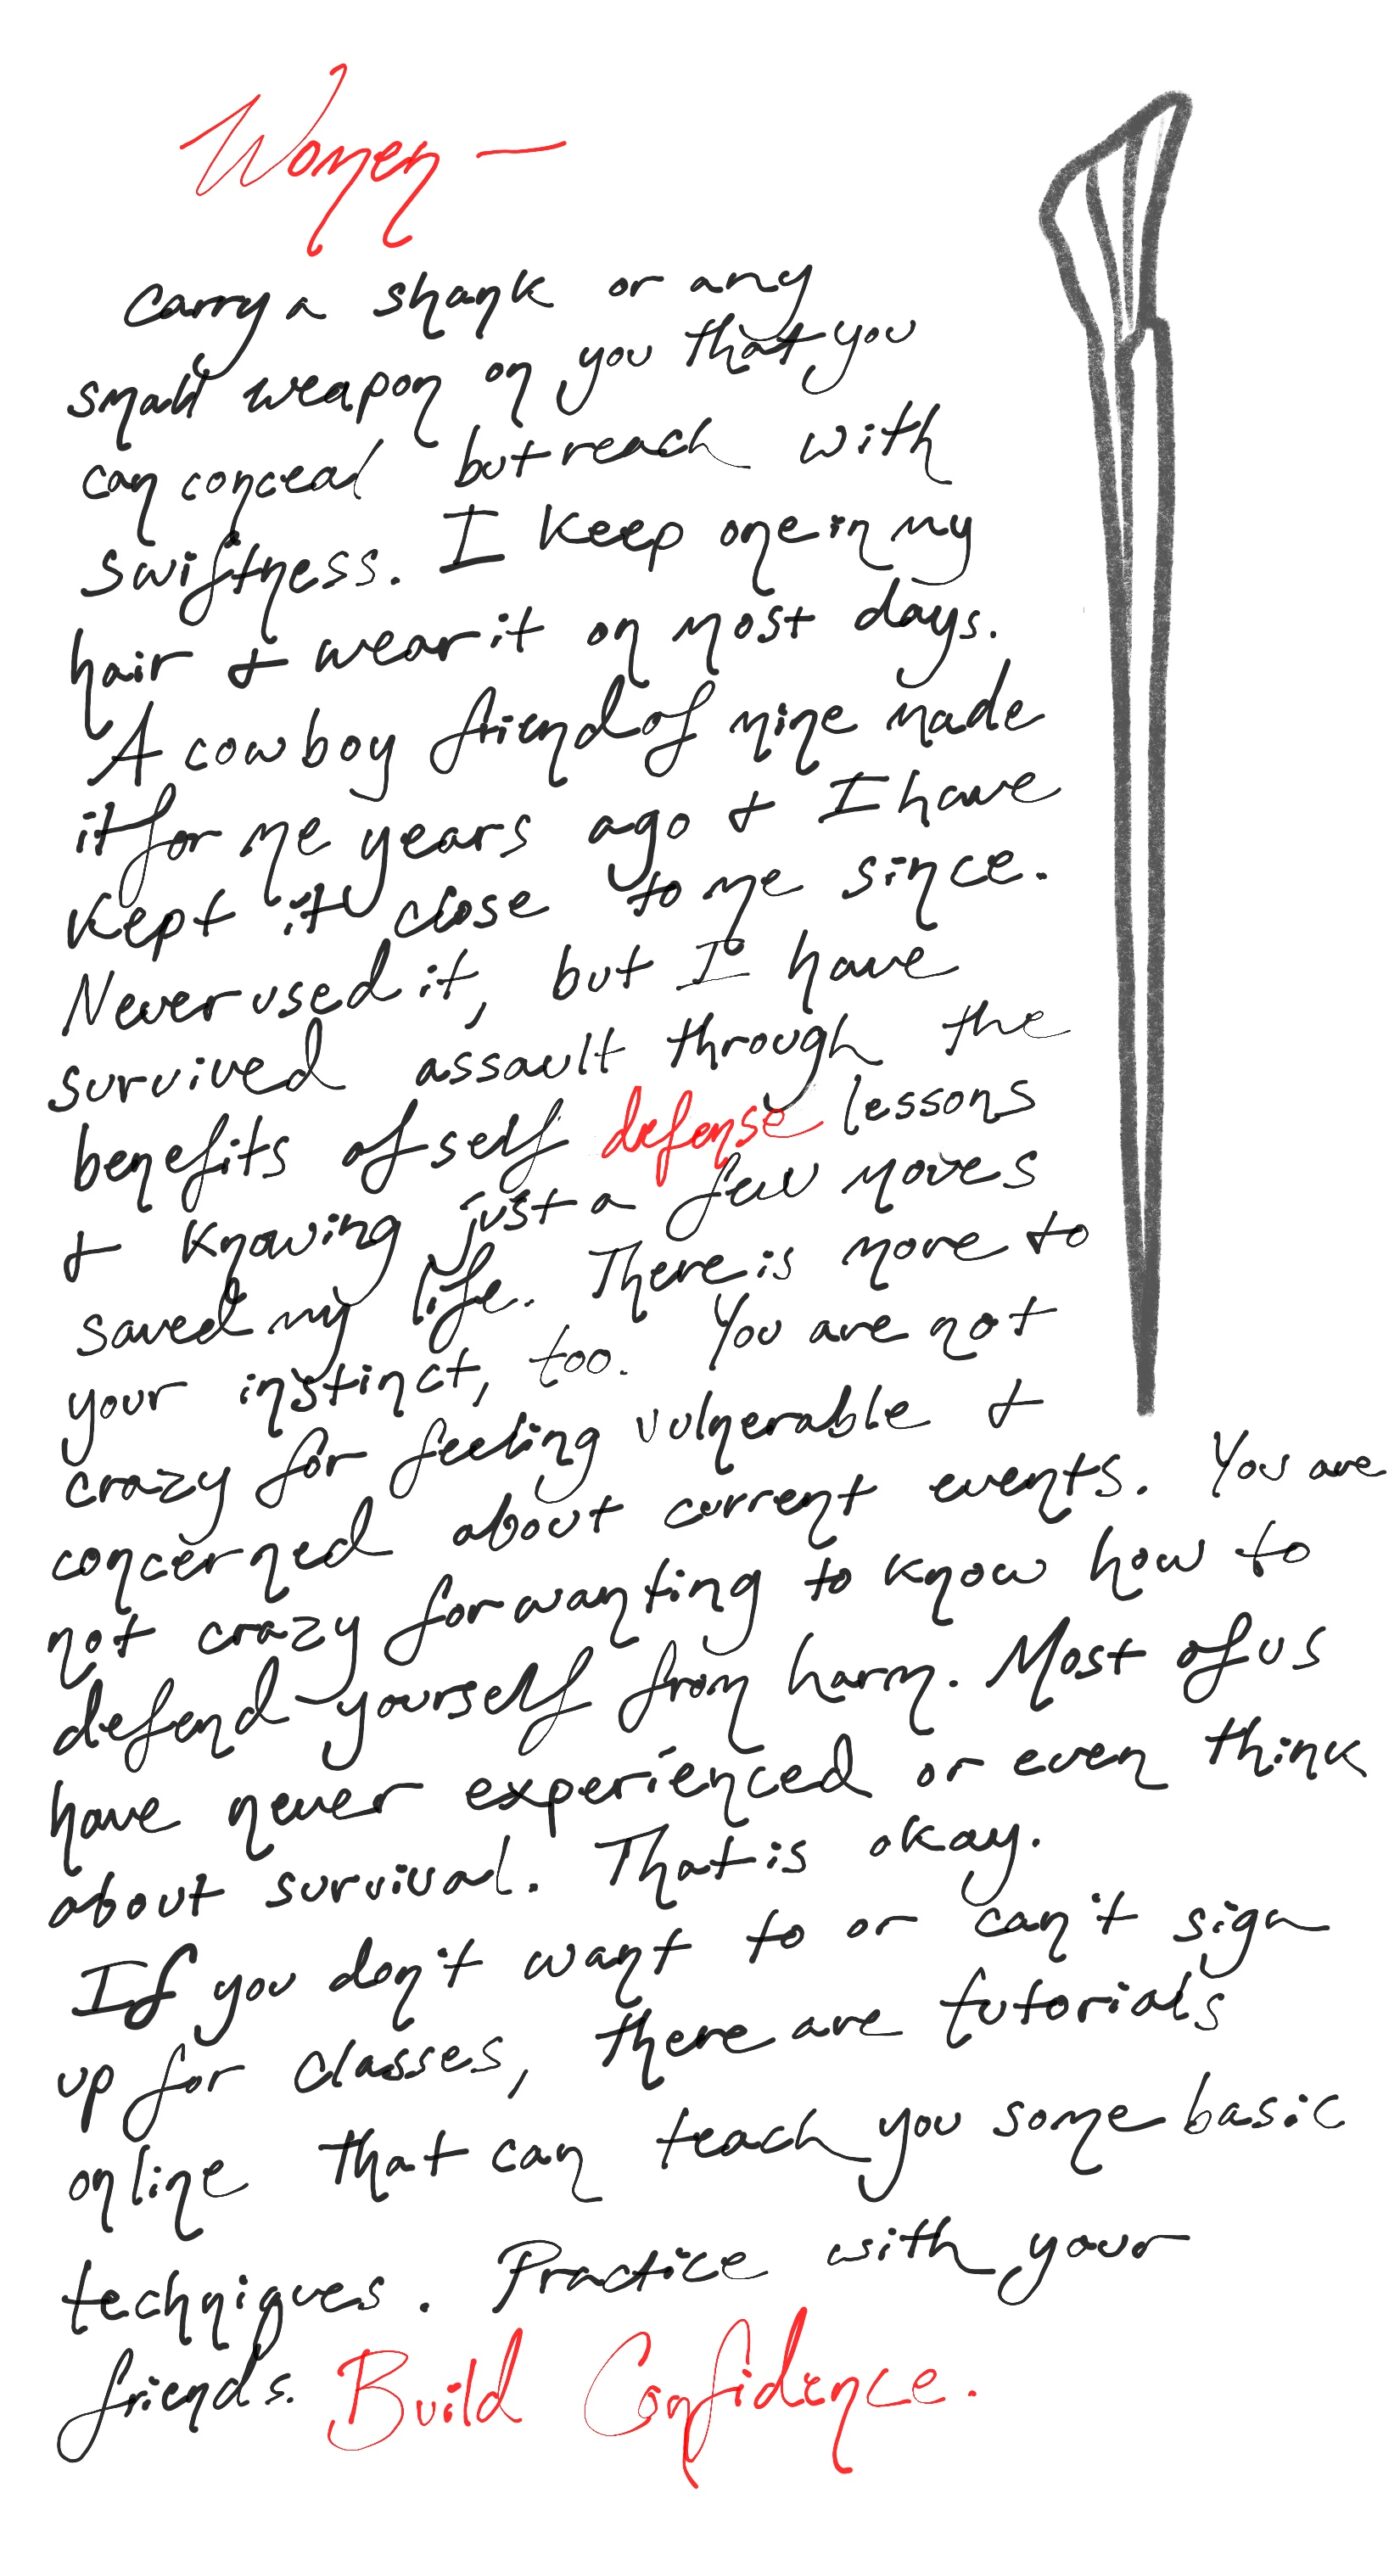 Women —
Carry a shank or any
small weapon on you that you
can conceal but reach with
swiftness. I keep one in my
hair & wear it on most days.
A cowboy friend of mine made
it for me years ago & I have
kept it close to me since.
Never used it, but I have
survived assault through the
benefits of self defense lessons
& knowing just a few moves
saved my life. There is more to
your instinct, too. You are not
crazy for feeling vulnerable &
concerned about current events. You are
not crazy for wanting to know how to
defend yourself from harm. Most of us
have never experienced or even think
about survival. That is okay.
If you don't want to or can't sign
up for classes, there are tutorials
online that can teach you some basic
techniques. Practice with your
friends. Build Confidence.